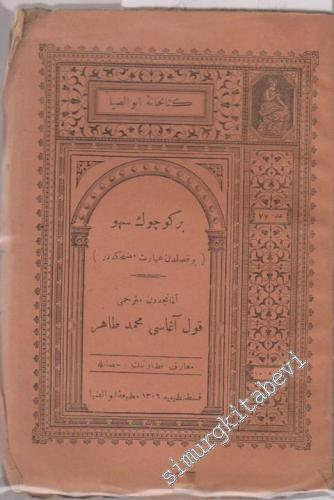 كتبخانۀ ابوالضيا
عدد ٧٧
بر كوچوك سهو
( بر فصلدن عبارت مضحكه در )
آلمانجه‌دن مترجمى
قول آغاسى محمد طاهر
معارف نظارتنك رخصتيله
قسطنطينيه ١٣٠٦ مطبعۀ ابوالضيا
simurgkitabevi.com